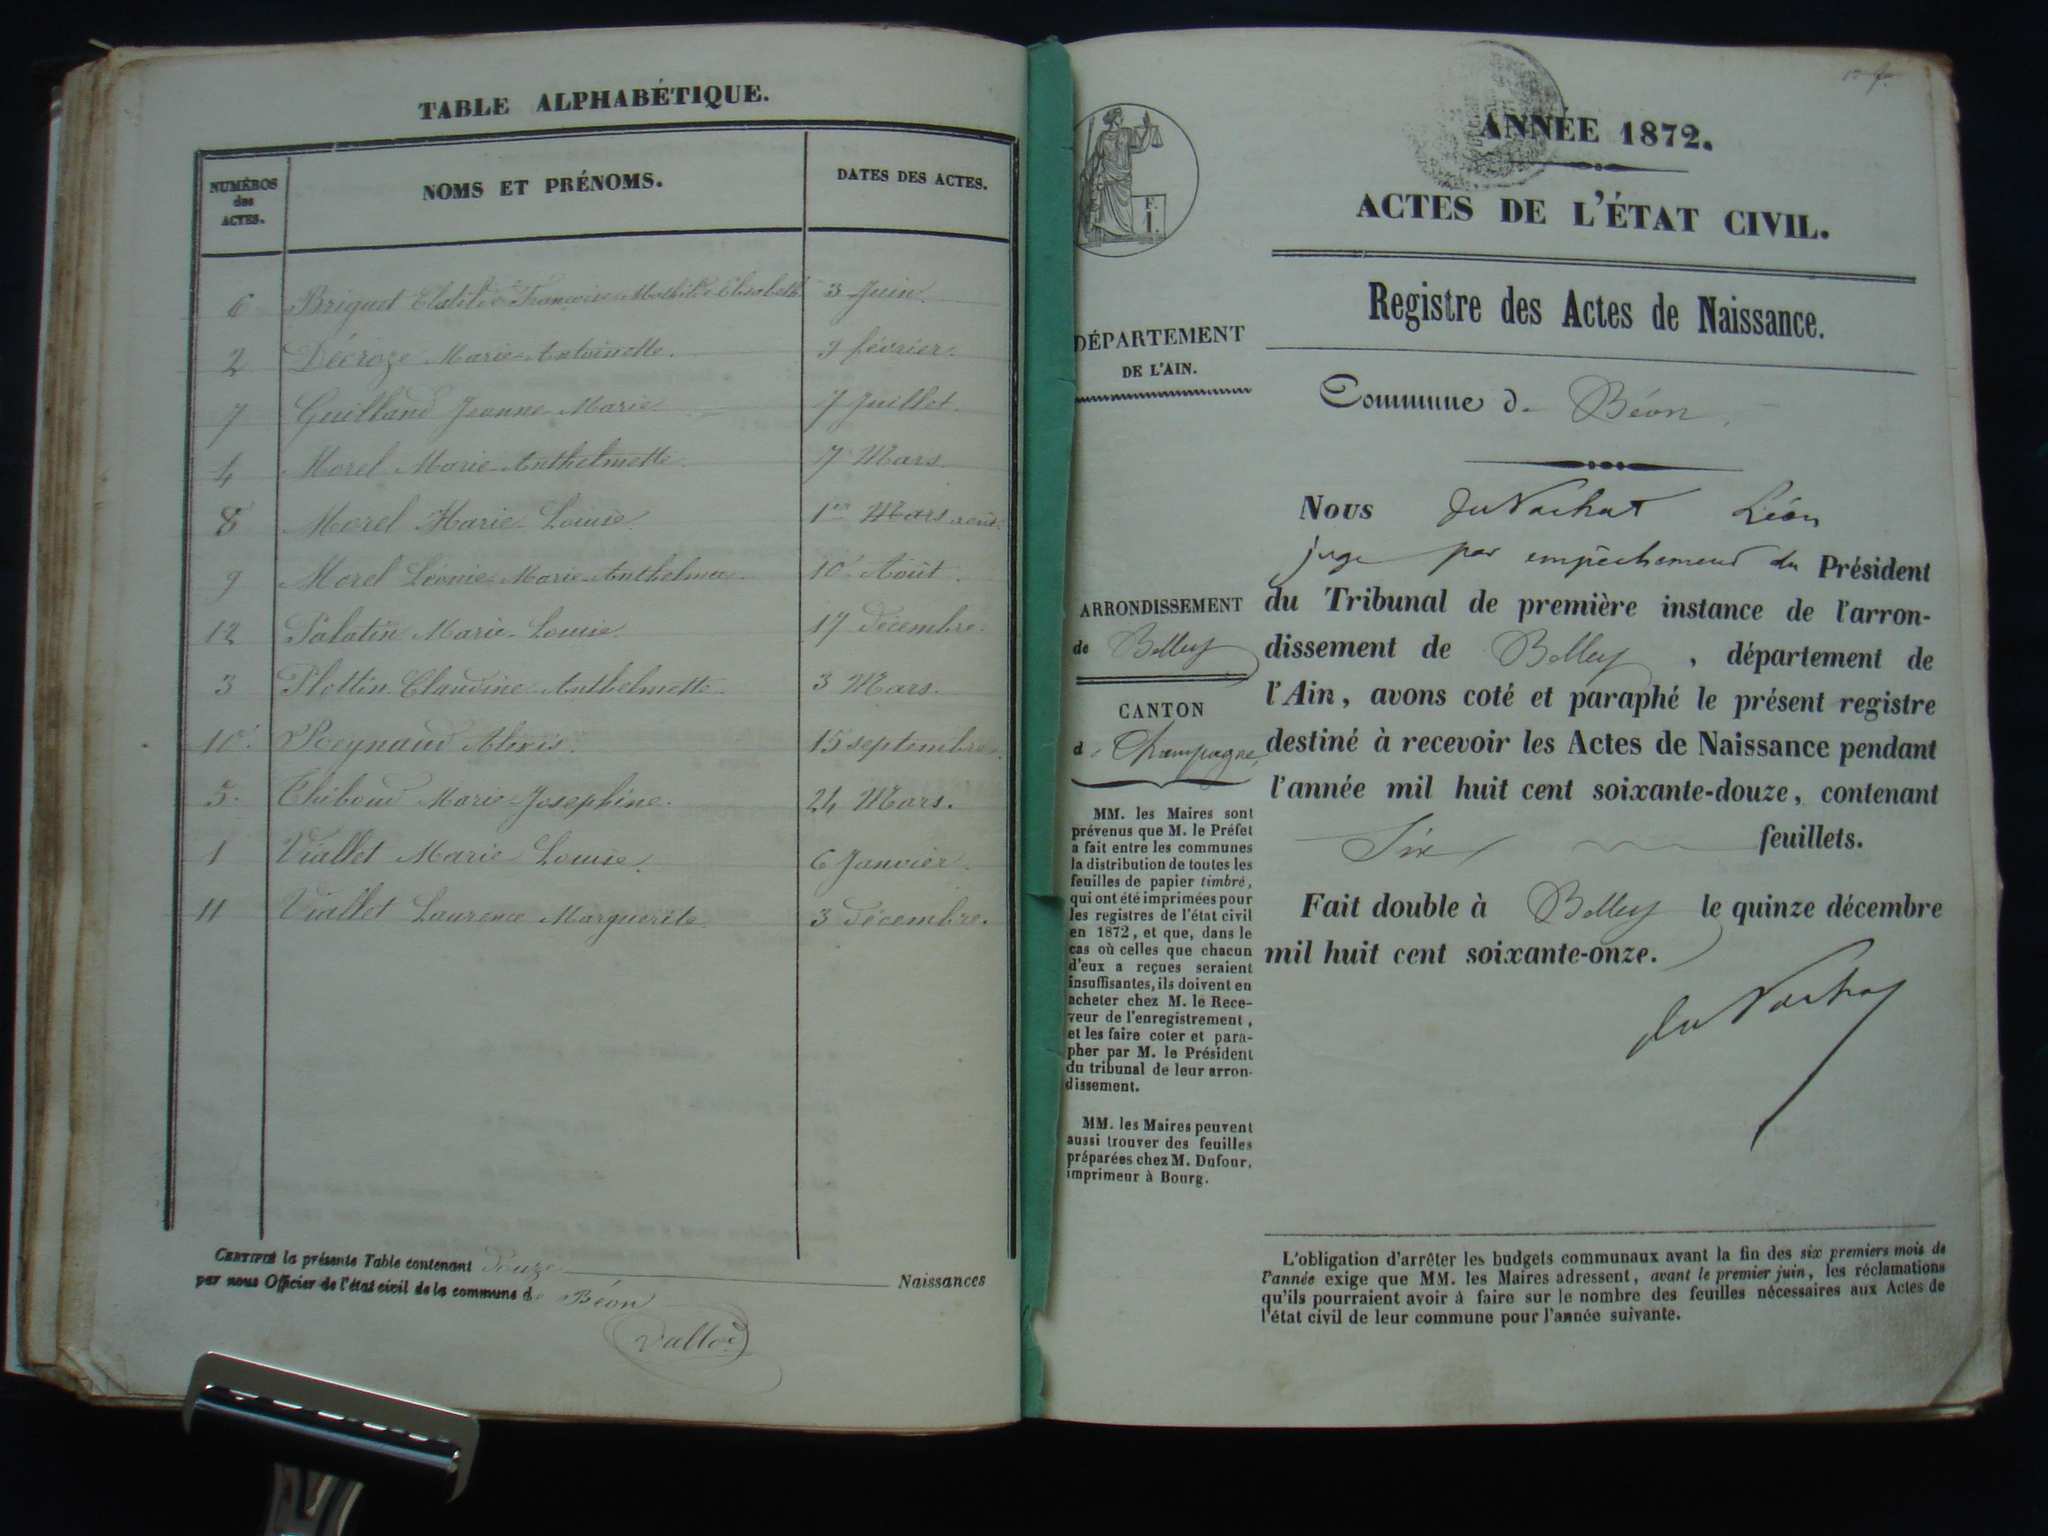 TABLE ALPHABÉTIQUE.
NUMÉROS des ACTES.
NOMS ET PRÉNOMS.
DATES DES ACTES.
6 Briquet Clotilde Françoise Mathilde Elisabeth 3 Juin.
2 Décroze Marie-Antoinette. février.
7 Guilland Jeanne-Marie 7 Juillet.
4 Morel Marie-Anthelmette 7 Mars.
8 Morel Marie-Louise 1er Mars août.
9 Morel Léonie-Marie-Anthelme 10 Août.
12 Palatin Marie-Louise. 17 Décembre.
3 Plottin Claudine Anthelmette 3 Mars.
10 Reynaud Alexis. 15 septembre.
5 Thiboud Marie-Josephine. 24 Mars.
1 Viallet Marie-Louise. 6 Janvier.
11 Viallet Laurence Marguerite 3 Décembre.
CERTIFIÉ la présente Table contenant Douze Naissances
par nous Officier de l'état civil de la commune de Béon
Vallod
ANNÉE 1872.
ACTES DE L'ÉTAT CIVIL.
Registre des Actes de Naissance.
F.
1.
DÉPARTEMENT
DE L'AIN.
Commune de Béon
Nous du Vachat Léon
juge par empêchement du Président
du Tribunal de première instance de l'arron-
dissement de Belley, département de
l'Ain, avons coté et paraphé le présent registre
destiné à recevoir les Actes de Naissance pendant
l'année mil huit cent soixante-douze, contenant
Six feuillets.
Fait double à Belley le quinze décembre
mil huit cent soixante-onze.
du Vachat
ARRONDISSEMENT
de Belley
CANTON
de Champagne
MM. les Maires sont
prévenus que M. le Préfet
a fait entre les communes
la distribution de toutes les
feuilles de papier timbré,
qui ont été imprimées pour
les registres de l'état civil
en 1872, et que, dans le
cas où celles que chacun
d'eux a reçues seraient
insuffisantes, ils doivent en
acheter chez M. le Rece-
veur de l'enregistrement,
et les faire coter et para-
pher par M. le Président
du tribunal de leur arron-
dissement.
MM. les Maires peuvent
aussi trouver des feuilles
préparées chez M. Dufour,
imprimeur à Bourg.
L'obligation d'arrêter les budgets communaux avant la fin des six premiers mois de
l'année exige que MM. les Maires adressent, avant le premier juin, les réclamations
qu'ils pourraient avoir à faire sur le nombre des feuilles nécessaires aux Actes de
l'état civil de leur commune pour l'année suivante.